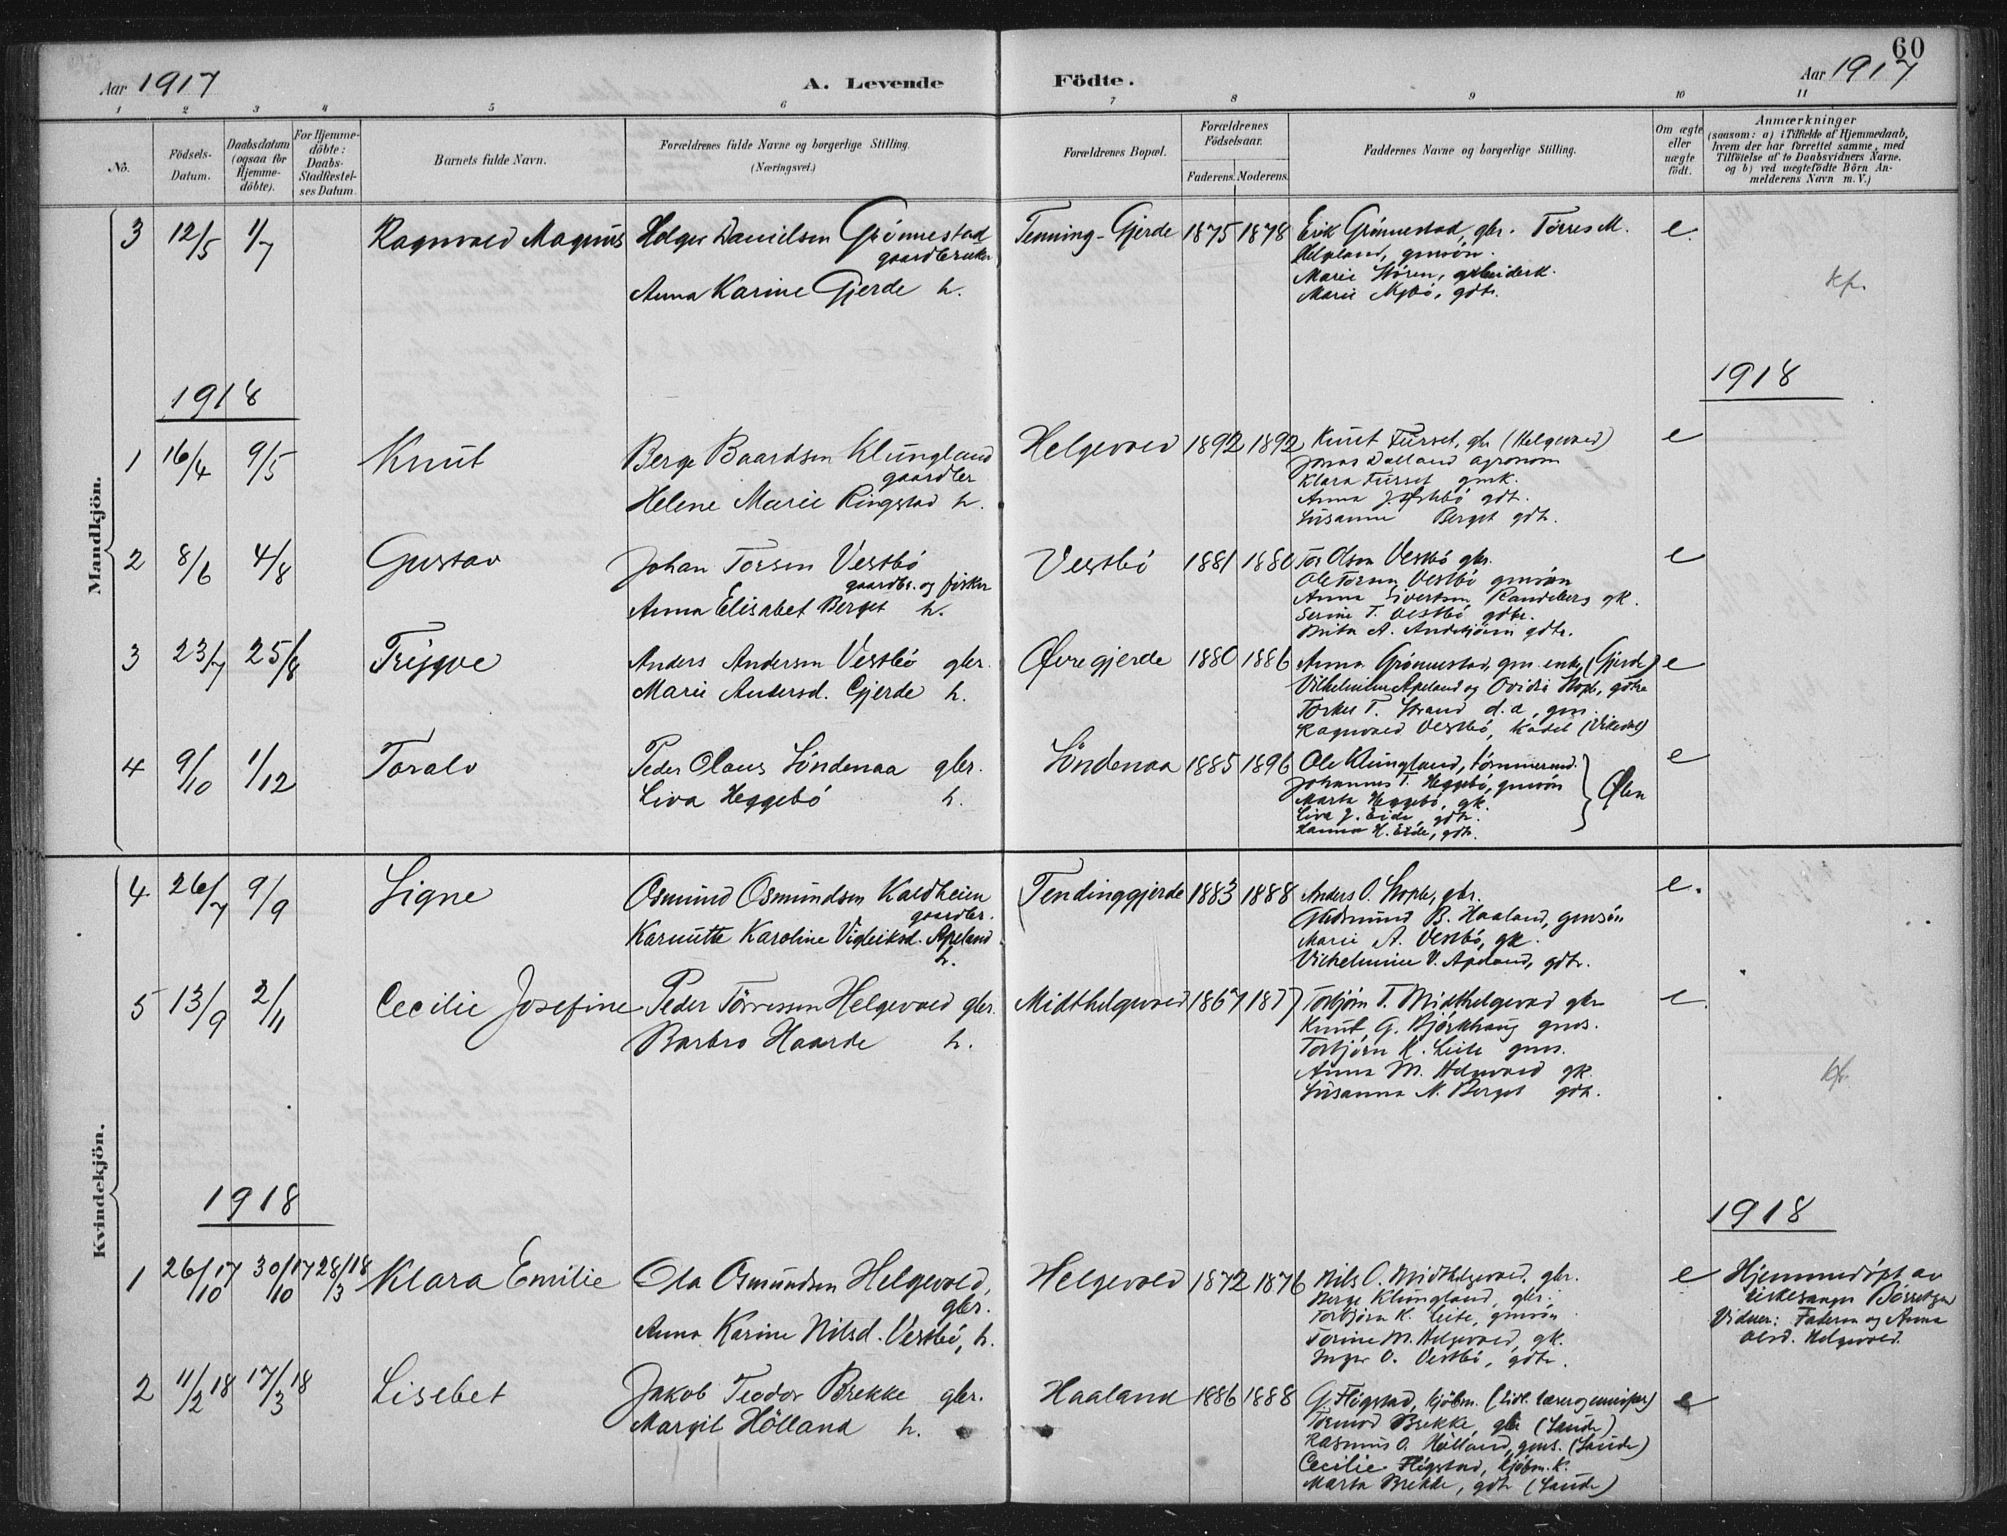 60
Aar 1917
A. Levende Födte.
Aar 1917
1 2 3 4 5 6 7 8 9 10 11
No.
Födsels-Datum.
Daabsdatum (ogsaa for Hjemme-döbte).
For Hjemme-döbte: Daabs-Stadfæstel-ses Datum.
Barnets fulde Navn.
Forældrenes fulde Navne og borgerlige Stilling.
(Næringsvei.)
Forældrenes Bopæl.
Forældrenes Födselsaar.
Faderens. Moderens.
Faddernes Navne og borgerlige Stilling.
Om ægte eller uægte födt.
Anmærkninger
(saasom: a) i Tilfælde af Hjemmedaab, hvem der har forrettet samme, med Tilföielse af to Daabsvidners Navne, og b) ved uægtefödte Börn An-melderens Navn m. V.)
Mandkjön.
3 12/5 1/7 Ragnvald Magnus Holger Danielsen Grønnestad Tenning-Gjerde 1875 1878 Erik Grønnestad, gbr. Tørres M. e.
gaardbruker Helgeland, gmsøn.
Marie Støren, arbeiderk.
Anna Karine Gjerde h. Marie Nybø, gdtr.
kp.
1918
1918
1 16/4 9/5 Knut Berge Baardsen Klungland Helgevold 1892 1892 Knut Furset, gbr (Helgevold) e
gaardbr Jonas Dalland agronom
Klara Furset gmk.
Helene Marie Ringstad h. Anna J. gdtr.
Susanne Berget gdtr.
2 8/6 4/8 Gustav Johan Torsen Vestbø Vestbø 1881 1880 Tor Olsen Vestbø gbr. e
gaardbr. og fisker Ole Torsen Vestbø gmsøn
Anna Elisabet Berget h. Anna Sivertsen Randeberg gk.
Serine T. Vestbø gdtr.
Brita A. gdtr.
3 23/7 25/8 Trygve Anders Andersen Vestbø gbr. Øvregjerde 1880 1886 Anna Grønnestad, gm. enke, (Gjerde) e
Marie Andersd. Gjerde h. Vilhelmine Apeland og Ovidia Hope, gdtre
Torkel T. Strand d.a., gm.
Ragnvald Vestbø, (Vikedal)
4 9/10 1/12 Toralv Peder Olaus Søndenaa gbr. Søndenaa 1885 1896 Ole Klungland, tømmermd. e
Liva Heggebø h. Johannes T. Heggebø, gmsøn
Marta Heggebø, gk. Ølen
Liva J. Eide, gdtr.
Hanna H. Eide, gdtr.
Kvindekjön.
4 26/7 9/9 Signe Osmund Osmundsen Kaldheim Tendinggjerde 1883 1888 Anders O. Hope, gbr. e.
gaardbr. Gudmund B. Haaland, gmsøn
Karnutte Karoline Vigleiksd. Apeland Marie A. Vestbø, gk.
h. Vilhelmine V. Apeland, gdtr.
5 13/9 2/11 Cecilie Josefine Peder Tørressen Helgevold gbr. Midthelgevold 1867 1877 Torbjørn T. Midthelgevold gbr e
Barbro Haarde h. Knut G. Bjørkhaug gms.
Torbjørn K. Leite gms.
Anna M. Helgevold gk.
Susanna N. Berget gdtr.
kp.
1918
1918
1 26/10 17 30/10 17 28/3 18 Klara Emilie Ola Osmundsen Helgevold, Helgevold 1872 1876 Nils O. Midthelgevold, gbr. e Hjemmedøpt av
gbr. Berge Klungland, gbr. kirkesanger Børretzen
Torbjørn K. Leite, gmsøn Vidner: Faderen og Anna
Anna Karine Nilsd. Vestbø, h. Torine M. Helgevold, gk. Olsd. Helgevold.
Inger O. Vestbø, gdtr.
2 11/2 18 17/3 18 Lisebet Jakob Teodor Brekke gbr. Haaland 1886 1888 G. Fligstad, kjøbm. e
Margit Hölland h. Tormod Brekke, gbr (Sande)
Rasmus O. Hölland, gms. (Sande)
Cecilie Fligstad, kjøbm.k.
Marta Brekke, gdtr (Sande)